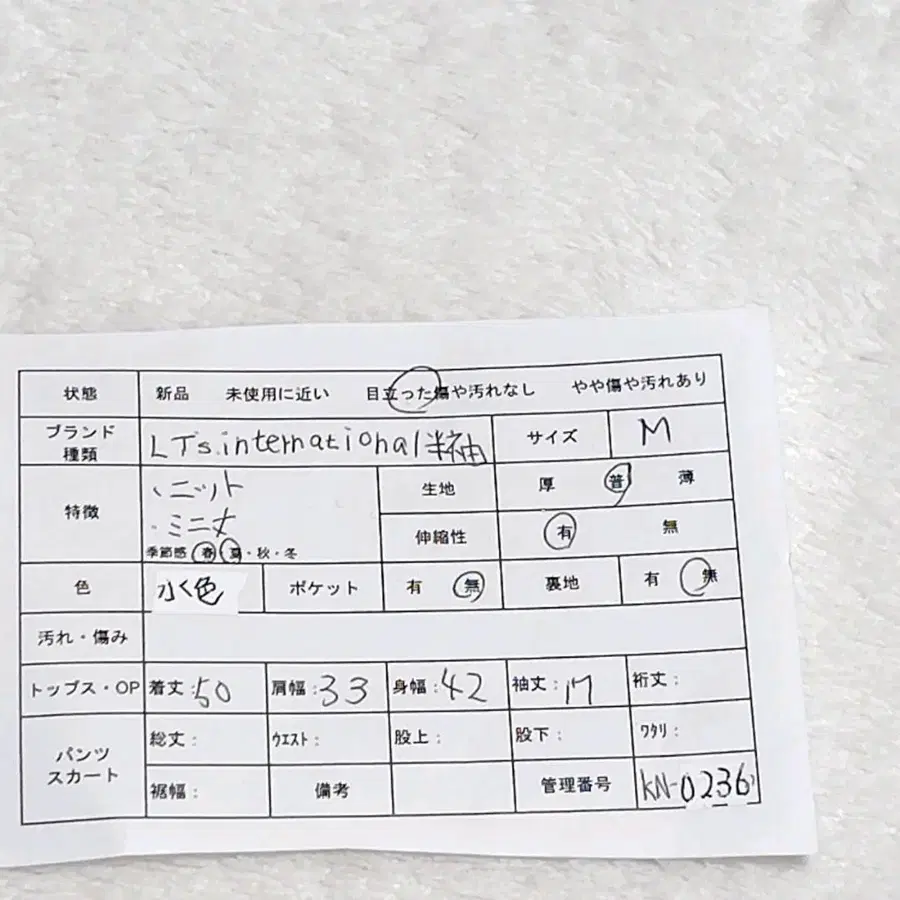 状態 新品 未使用に近い 目立った傷や汚れなし やや傷や汚れあり
ブランド 種類 LTs.international半袖 サイズ M
特徴 ・ニット 生地 厚 普 薄
・ミニ丈 伸縮性 有 無
季節感 春・夏・秋・冬
色 水色 ポケット 有 無 裏地 有 無
汚れ・傷み
トップス・OP 着丈:50 肩幅:33 身幅:42 袖丈:17 裄丈:
パンツ スカート 総丈: ウエスト: 股上: 股下: ワタリ:
裾幅: 備考 管理番号 KN-0236